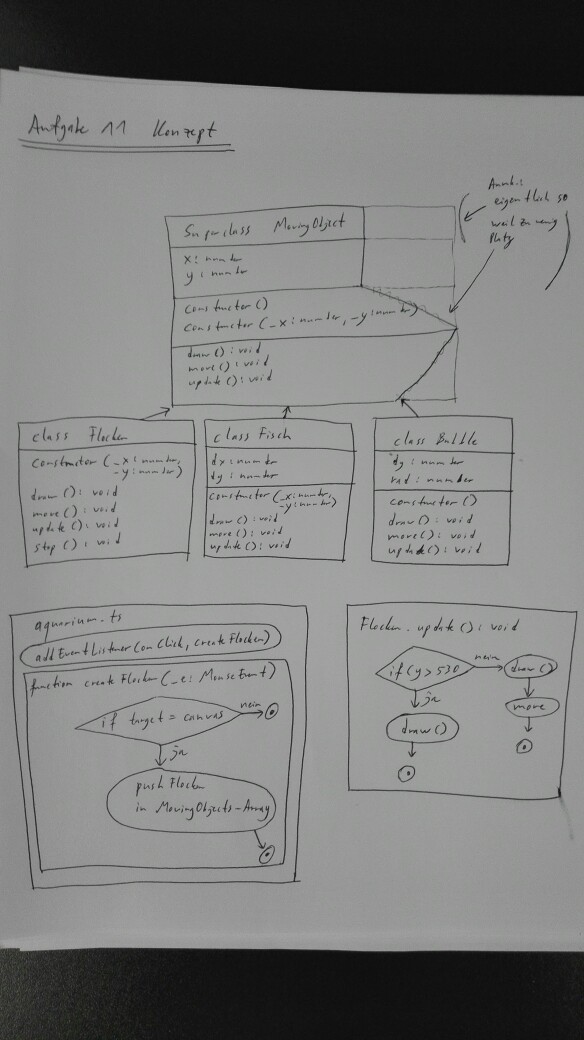 Aufgabe 11 Konzept
Anmk.:
eigentlich so
weil zu wenig
Platz
Superclass MovingObject
x: number
y: number
constructor ()
constructor (_x: number, _y: number)
draw(): void
move(): void
update(): void
class Flocken
constructor (_x: number,
_y: number)
draw(): void
move(): void
update(): void
stop(): void
class Fisch
dx: number
dy: number
constructor (_x: number,
_y: number)
draw(): void
move(): void
update(): void
class Bubble
dy: number
rad: number
constructor ()
draw(): void
move(): void
update(): void
aquarium.ts
addEventListener (on Click, createFlocken)
function createFlocken (_e: MouseEvent)
if target = canvas
nein
ja
push Flocken
in MovingObjects-Array
Flocken.update(): void
if (y > 530
nein
draw()
ja
move
draw()